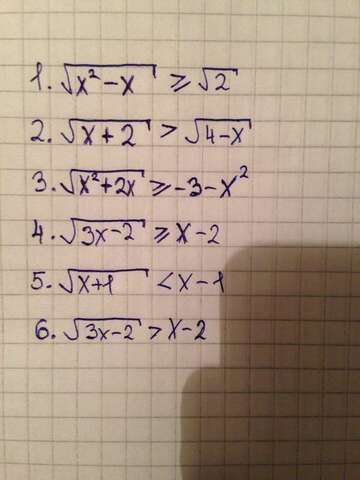 1. √(x² - x) ≥ √2
2. √(x + 2) > √(4 - x)
3. √(x² + 2x) ≥ -3 - x²
4. √(3x - 2) ≥ x - 2
5. √(x + 1) < x - 1
6. √(3x - 2) > x - 2